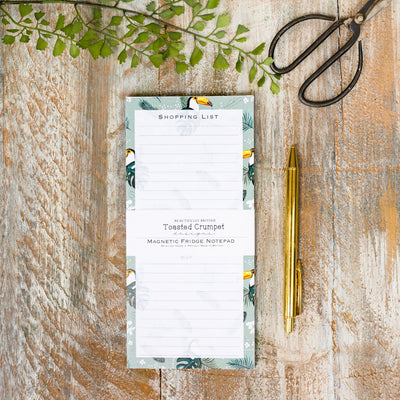 Shopping List
BEAUTIFULLY BRITISH
Toasted Crumpet
designs
Magnetic Fridge Notepad